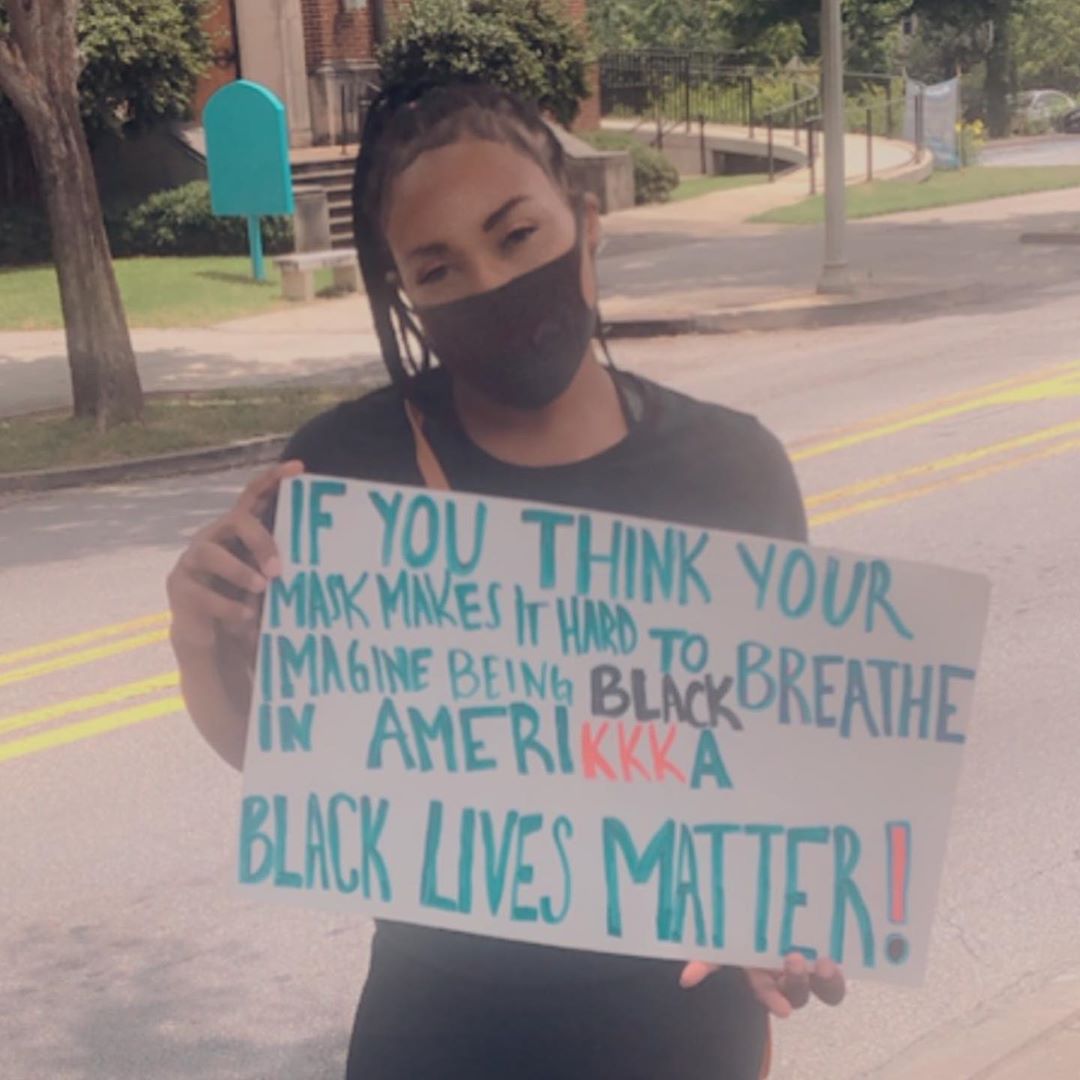 IF YOU THINK YOUR
MASK MAKES IT HARD TO BREATHE
IMAGINE BEING BLACK
IN AMERIKKKA
BLACK LIVES MATTER!